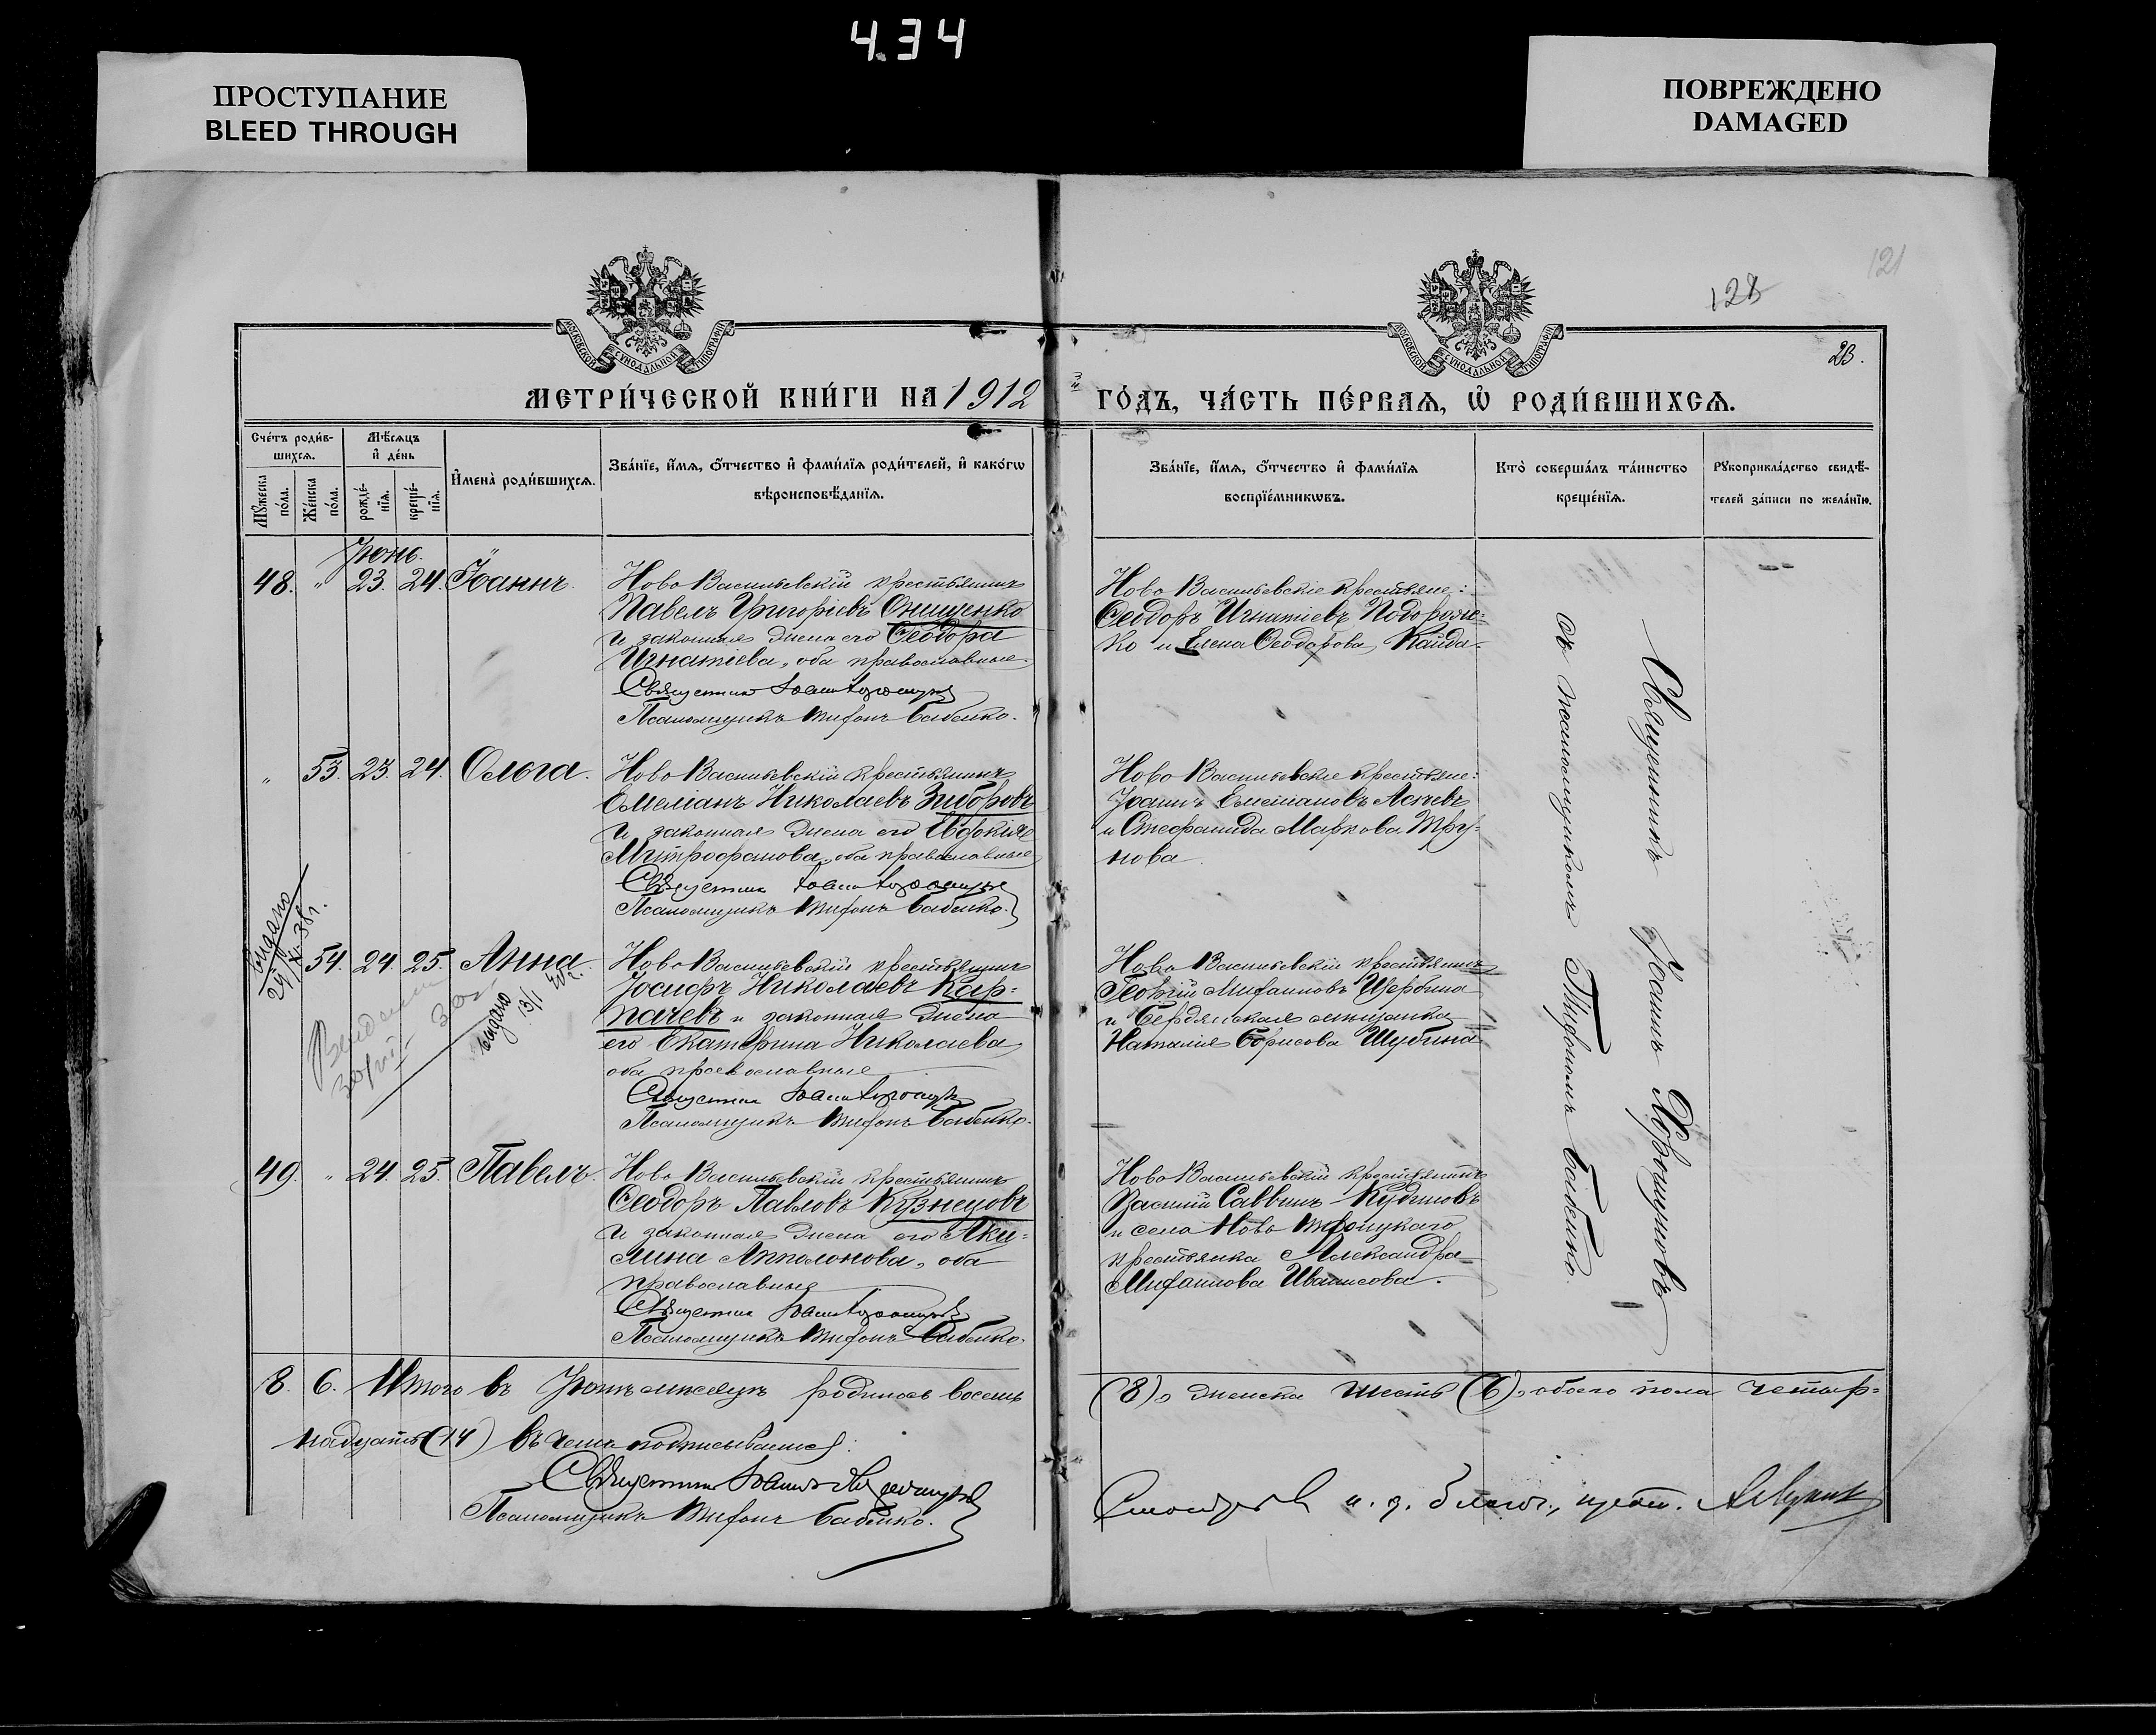 4.34
ПРОСТУПАНИЕ
BLEED THROUGH
ПОВРЕЖДЕНО
DAMAGED
121
128
23.
МОСКОВСКОЙ СѴНОДАЛЬНОЙ ТИПОГРАФІИ
МОСКОВСКОЙ СѴНОДАЛЬНОЙ ТИПОГРАФІИ
МЕТРИ́ЧЕСКОЙ КНИ́ГИ НА 1912й ГО́ДЪ, ЧА́СТЬ ПЕ́РВАѦ, Ѽ РОДИ́ВШИХСѦ.
Сче́тъ роди́в-
шихсѧ.
Мꙋ́жеска по́ла.
Же́нска по́ла.
Мѣ́сѧцъ
и҆ де́нь
рожде́-
нїѧ.
креще́-
нїѧ.
И҆мена̀ роди́вшихсѧ.
Зва́нїе, и҆́мѧ, ѻ҆́тчество и҆ фами́лїѧ роди́телей, и҆ како́гѡ
вѣроисповѣ́данїѧ.
Зва́нїе, и҆́мѧ, ѻ҆́тчество и҆ фами́лїѧ
воспрїе́мникѡвъ.
Кто̀ соверша́лъ та́инство
креще́нїѧ.
Рꙋкоприкла́дство свидѣ́-
телей за́писи по жела́нїю.
Іюнь.
48. " 23. 24. Іоаннъ.
Ново Васильевскій крестьянинъ
Павелъ Григоріевъ Онищенко
и законная жена его Ѳеодора
Игнатіева, оба православные.
Священникъ Іоаннъ Хорошуновъ
Псаломщикъ Тифонъ Бабенко.
Ново Васильевскіе крестьяне:
Ѳеодоръ Игнатіевъ Подорож=
ко и Елена Ѳеодорова Кайда-
" 53. 23. 24. Ольга.
Ново Васильевскій крестьянинъ
Емеліанъ Николаевъ Зиборовъ
и законная жена его Евдокія
Митрофанова, оба православные
Священникъ Іоаннъ Хорошуновъ
Псаломщикъ Тифонъ Бабенко.
Ново Васильевскіе крестьяне:
Іоаннъ Емеліановъ
и Стефанида Маркова Тру-
нова
Видано
54. 24. 25. Анна.
Видано
Ново Васильевскій крестьянинъ
Іосифъ Николаевъ Кар=
пачевъ и законная жена
его Екатерина Николаева
оба православные
Священникъ Іоаннъ Хорошуновъ
Псаломщикъ Тифонъ Бабенко.
Ново Васильевскій крестьянинъ
Георгій Михаиловъ Щербина
и Бердянская мѣщанка
Наталія Борисова Шубина
49. " 24. 25. Павелъ.
Ново Васильевскій крестьянинъ
Ѳеодоръ Павловъ Кузнецовъ
и законная жена его Аки=
лина Апполонова, оба
православные
Священникъ Іоаннъ Хорошуновъ
Псаломщикъ Тифонъ Бабенко.
Ново Васильевскій крестьянинъ
Василій Саввинъ
и села Ново Троицкаго
крестьянка Александра
Михаилова
Священникъ Іоаннъ Хорошуновъ
съ псаломщикомъ Тифономъ Бабенко.
8. 6. Итого въ Іюнѣ мѣсяцѣ родилось восемь (8), женска шесть (6), обоего пола четыр=
надцать (14) въ чемъ подписываемся:
Священникъ Іоаннъ Хорошуновъ
Псаломщикъ Тифонъ Бабенко.
и. д. благоч., прот.